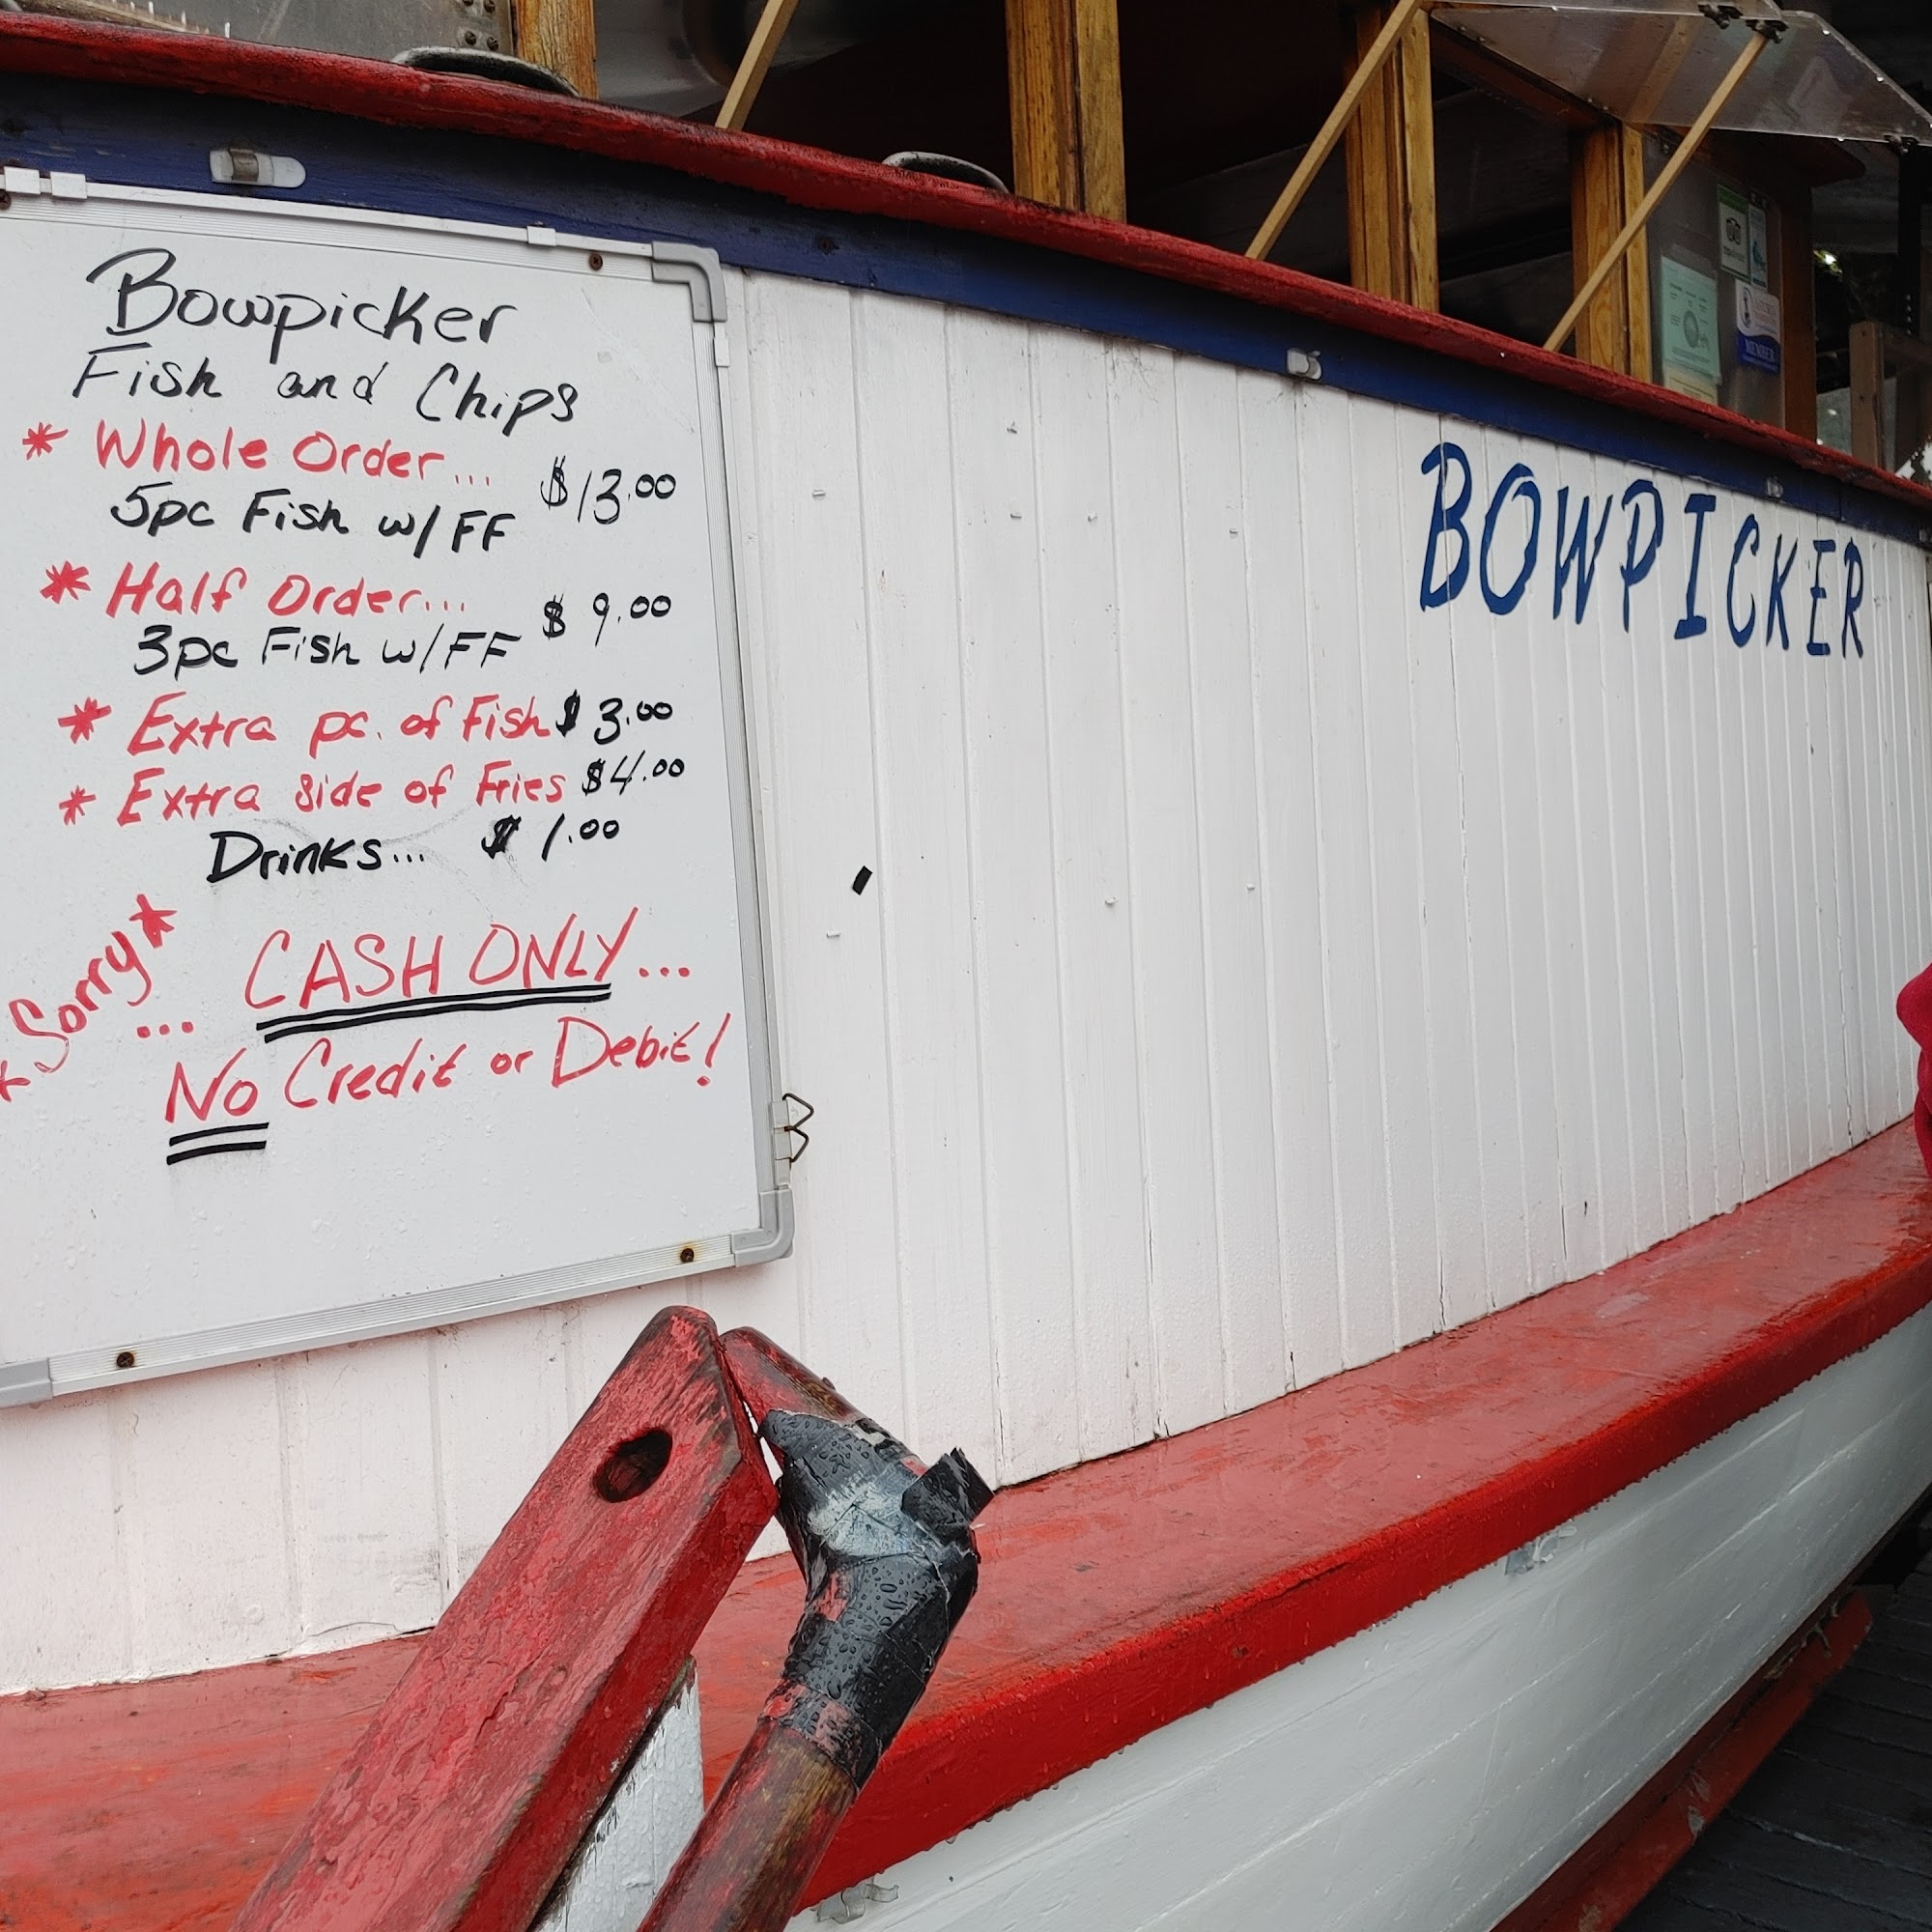 Bowpicker
Fish and Chips
* Whole Order... $13.00
5pc Fish w/FF
* Half Order... $ 9.00
3pc Fish w/FF
* Extra pc. of Fish $ 3.00
* Extra side of Fries $4.00
Drinks... $ 1.00
*Sorry*
... CASH ONLY...
No Credit or Debit!
BOWPICKER
MEMBER